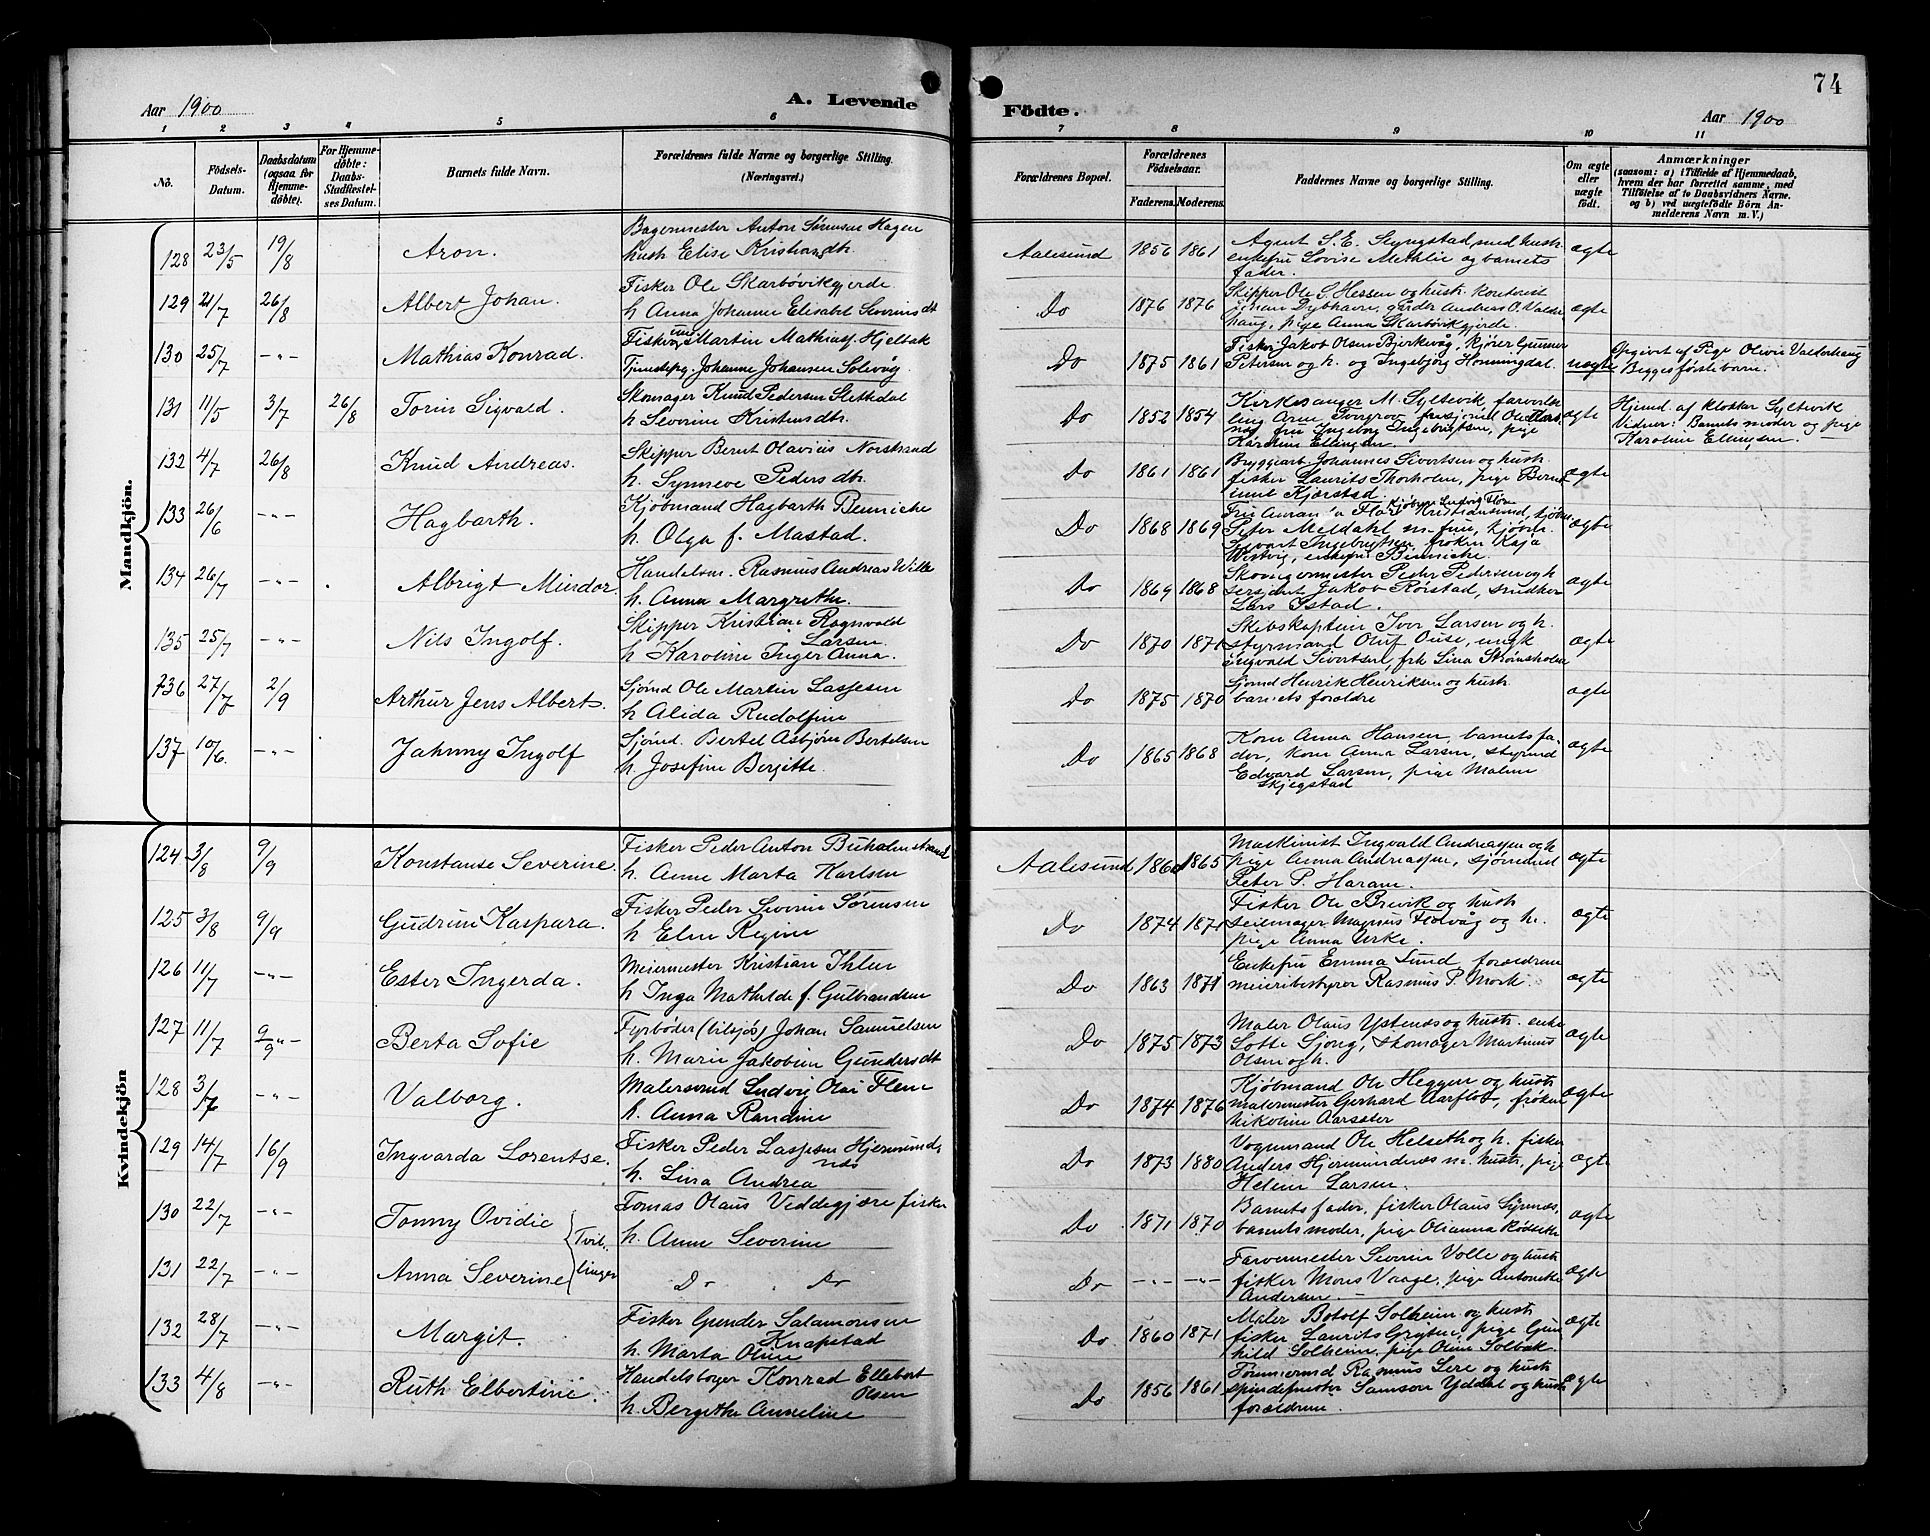 74
Aar 1900
A. Levende
Födte.
Aar 1900
1 2 3 4 5 6 7 8 9 10 11
No.
Födsels-Datum.
Daabsdatum (ogsaa for Hjemmedöbte).
For Hjemmedöbte: Daabs-Stadfæstelses Datum.
Barnets fulde Navn.
Forældrenes fulde Navne og borgerlige Stilling.
(Næringsvei.)
Forældrenes Bopæl.
Forældrenes Födselsaar.
Faderens. Moderens.
Faddernes Navne og borgerlige Stilling.
Om ægte eller uægte födt.
Anmærkninger
(saasom: a) i Tilfælde af Hjemmedaab, hvem der har forrettet samme, med Tilföielse af to Daabsvidners Navne. og b) ved uægtefödte Börn Anmelderens Navn m. V.)
Mandkjön.
128 23/5 19/8 Aron. Bagermester Anton Sørensen Hagen
hust Elise Kristiansdtr. Aalesund 1856 1861 Agent S. E. Slyngstad med hustr.
enkefru Lovise Methlie og barnets
fader. ægte
129 21/7 26/8 Albert Johan. Fisker Ole Skarbøvikgjerde
h Anna Johanne Elisabet Severinsdt Do 1876 1876 Skipper Ole S. Hessen og hustr. kontorist
Johan Dybhavn, gårdbr Andreas O. Valder
haug, pige Anna Skarbøvikgjerde. ægte
130 25/7 -"- Mathias Konrad. Fisker ung Martin Mathiass Hjelbak
Tjenestepg. Johanne Johansen Solevåg. Do 1875 1861 Fisker Jakob Olsen Bjørkevåg, kjører Gunner
Petersen og h. og Ingebjørg Honningdal. uægte Opgivet af Pige Olivie Valderhaug
Begges første barn.
131 11/5 3/7 26/8 Torin Sigvald. Skomager Knud Pedersen Slettedal
h Severine Kristensdtr. Do 1852 1854 Kirkesanger M. Syltevik, farverlær
ling Arne
fru Ingeborg Ingebrigtsen, pige
Karoline Ellingsen ægte Hjemd. af klokker Syltevik
Vidner: Barnets moder og pige
Karoline Ellingsen. —
132 4/7 26/8 Knud Andreas. Skipper Bernt Olavius Norstrand
h. Synneve Pedersdtr. Do 1861 1861 Bryggearb Johannes Sivertsen og hustr
fisker Laurits Thorholm, pige Bernt
ine Kjørstad. ægte
133 26/6 -"- Hagbarth. Kjøbmand Hagbarth Bennecke
h. Olga f. Mastad. Do 1868 1869 Kjøbm Ludvig
Kristiansund, kjøbm
Peter Meldahl m. frue, kjøbm.
Sivert Ingebrigtsen, frøken Kaja
enkefru Bennecke. ægte
134 26/7 -"- Albrigt Mindor. Handelsm. Rasmus Andreas Wiik
h. Anna Margrethe. Do 1869 1868 Skomagermester Peder Pedersen og h
sersjant Jakob Rørstad, snedker
Lars Ystad. ægte
135 25/7 -"- Nils Ingolf. Skipper Kristian Ragnvald
Larsen
h Karoline Inger Anna. Do 1870 1871 Skibskaptein Iver Larsen og h.
styrmand Oluf Ouse, ungk
Ingvald Sivertsen, frk Lina Strømsholm ægte
136 27/7 2/9 Arthur Jens Albert. Sjømd Ole Martin Lassesen
h Alida Rudolfine Do 1875 1870 Sjømd Henrik Henriksen og hustr.
barnets foraldre ægte
137 10/6. -"- Jahnny Ingolf Sjømd. Bertel Asbjørn Bertelsen
h. Josefine Bergitte. Do 1865 1868 Kone Anna Hansen, barnets fa-
der, kone Anna Larsen, styrmd
Edvard Larsen, pige Malene
Skjegstad ægte
Kvindekjön
124 3/8 9/9 Konstanse Severine. Fisker Peder Anton Buholmstrand
h. Anne Marta Karlsen Aalesund 1860 1865 Maskinist Ingvald Andreassen og h
pige Anna Andreassen, sjømand
Peter P. Haram. ægte
125 3/8 9/9 Gudrun Kaspara. Fisker Peder Severin Sørensen
h Elen Regine Do 1874 1871 Fisker Ole Brevik og hustr
seilmager Magnus Flotvåg og h.
pige Anna Urke. ægte
126 11/7 -"- Ester Ingerda. Meiermester Kristian Ihlen
h Inga Mathilde f. Gulbrandsen Do 1863 1871 Enkefru Emma Lund, forældrene
meieribestyrer Rasmus P. Mork. ægte
127 11/7 9/9 -"- Berta Sofie Fyrbøder (tilsjøs) Johan Samuelsen
h. Marie Jakobine Gundersdt Do 1875 1873 Maler Olaus Ystenes og hustr. enke
Lotte Sjong, skomager Martinus
Olsen og h. ægte
128 3/7 -"- Valborg. Malersvend Ludvig Olai Flem
h. Anna Randine Do 1874 1876 Kjøbmand Ole Heggen og hustr
malermester Gerhard Aarflot, frøken
Nikoline Aarsæter ægte
129 14/7 16/9 Ingvarda Lorentse. Fisker Peder Lassesen Hjermunds
næs
h. Lina Andrea Do 1873 1880 Vognmand Ole Helseth og h. fisker
Anders Hjermundnæs m. hustr, pige
Helene Larsen. ægte
130 22/7 -"- Tonny Ovidie Tvil- Tomas Olaus Veddegjære fisker
h. Anne Severine Do 1871 1870 Barnets fader, fisker Olaus Synnæs,
barnets moder, pige Olianna Rødseth ægte
131 22/7 -"- Anna Severine linger Do Do Do -"- -"- Farvermester Severin Volle og hustr
fisker Mons Vaage, pige Antonette
Andersen. ægte
132 28/7 -"- Margit. Fisker Gunder Salamonsen
Knapstad
h. Marta Oline Do 1860 1871 Maler Botolf Solheim og hustr
fisker Laurits Grytten, pige Gun
hild Solheim, pige Oline Solbak. ægte
133 4/8 -"- Ruth Elbertine. Handelsborger Konrad Ellebert
Olsen
h. Bergithe Anneline Do 1856 1861 Tømmermd Rasmus Lere og hustr
spindemester Samson Yddal og hustr
forældrene. ægte